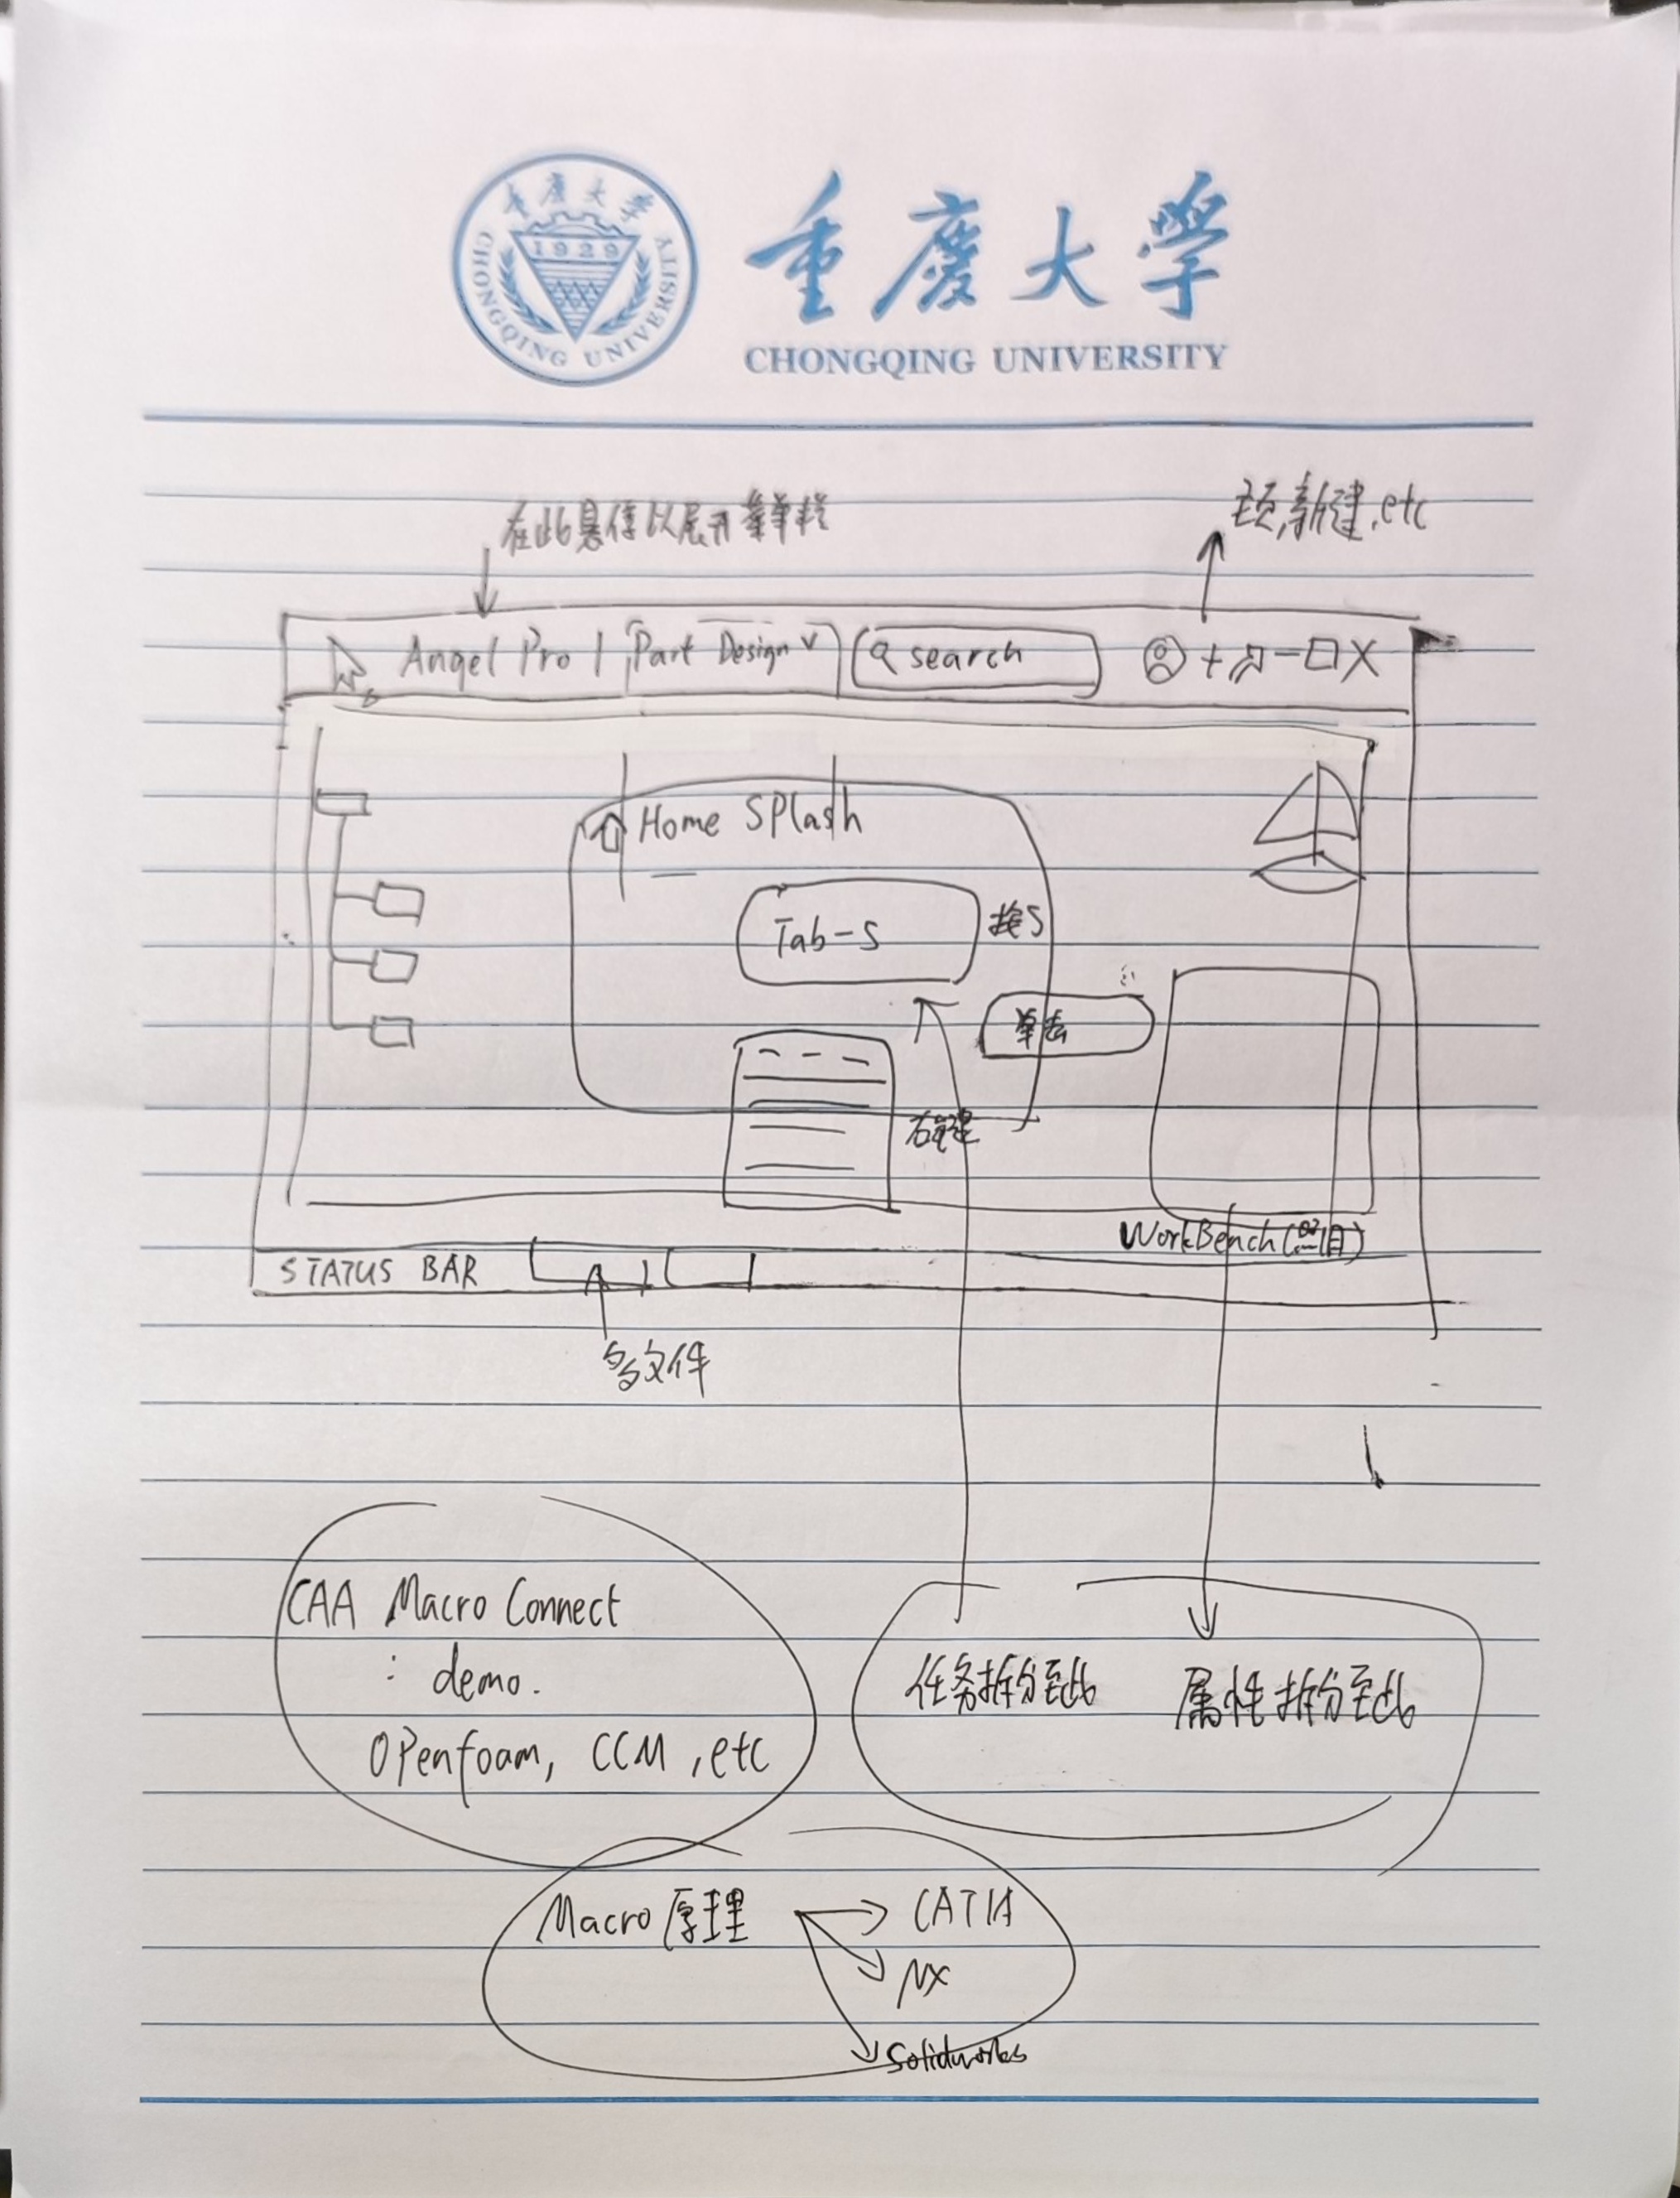 重慶大學
CHONGQING UNIVERSITY
重慶大學
1929
CHONGQING UNIVERSITY
在此悬停以展开菜单栏
主页,新建,etc
Angel Pro | Part Design search
Home Splash
Tab-S
按S
单击
右键
WorkBench
STATUS BAR
多文件
CAA Macro Connect
: demo.
Openfoam, CCM, etc
任务拆分至此
属性拆分至此
Macro原理
CATIA
NX
Solidworks